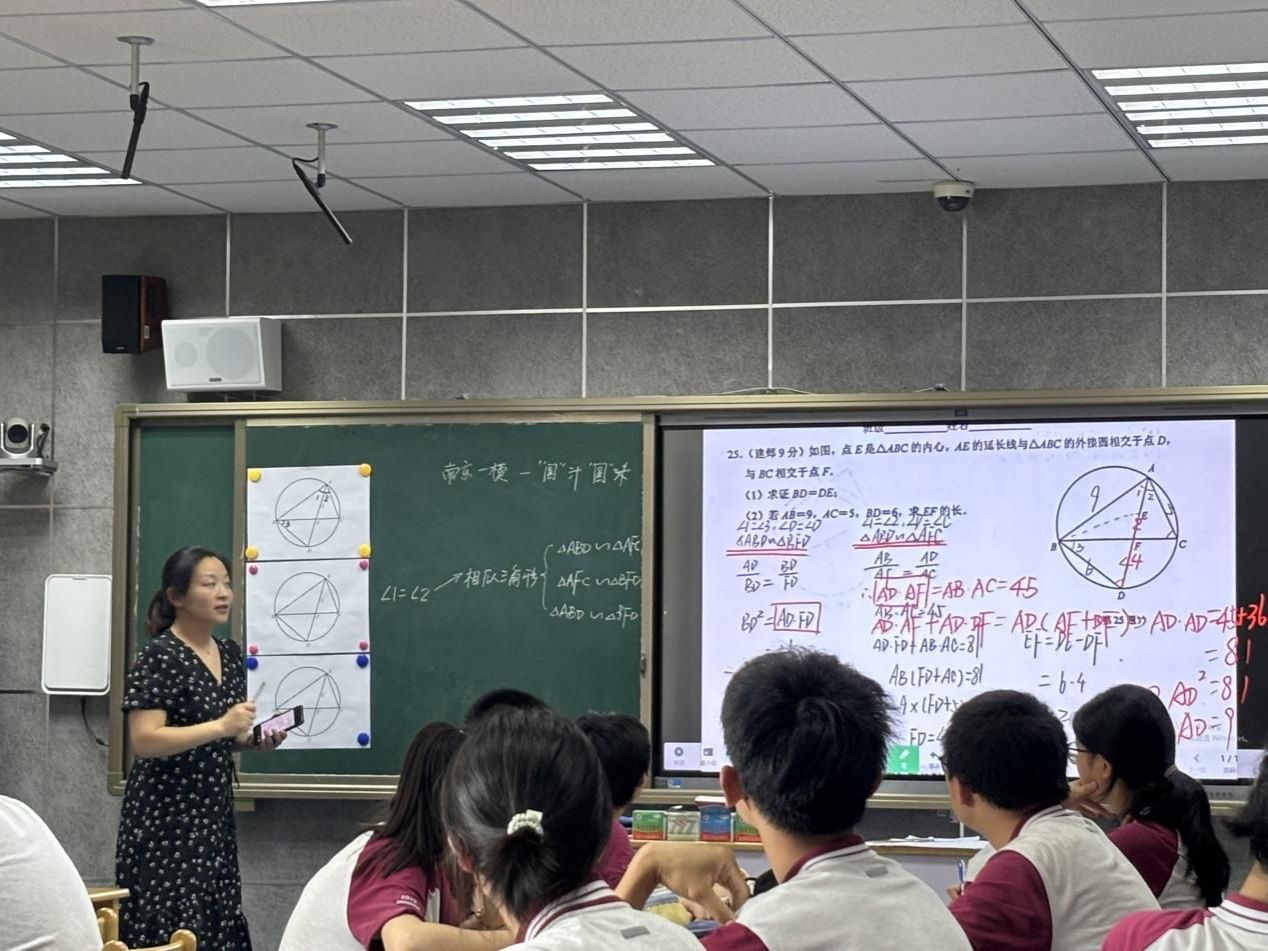 南京一模一"圆"汁"圆"味
∠1=∠2
相似三角形
△ABD∽△AFC
△AFC∽△BFD
△ABD∽△BFD
班级 姓名
25.(建邺9分)如图,点E是△ABC的内心,AE的延长线与△ABC的外接圆相交于点D,
与BC相交于点F.
(1)求证BD=DE;
(2)若AB=9,AC=5,BD=6,求EF的长.
∠1=∠3,∠D=∠D
△ABD∽△BFD
AD/BD = BD/FD
BD²=AD·FD
∠1=∠2,∠D=∠C
△ABD∽△AFC
AB/AF = AD/AC
∴AD·AF=AB·AC=45
AB·AC=45
AD·AF+AD·DF=AD·(AF+DF)=AD·AD=45+36
=81
AD·FD+AB·AC=81
EF=DE-DF
AB(FD+AC)=81
=6-4
AD²=81
AD=9
A
B
C
D
E
F
9
6
4
1
2
3
1/1